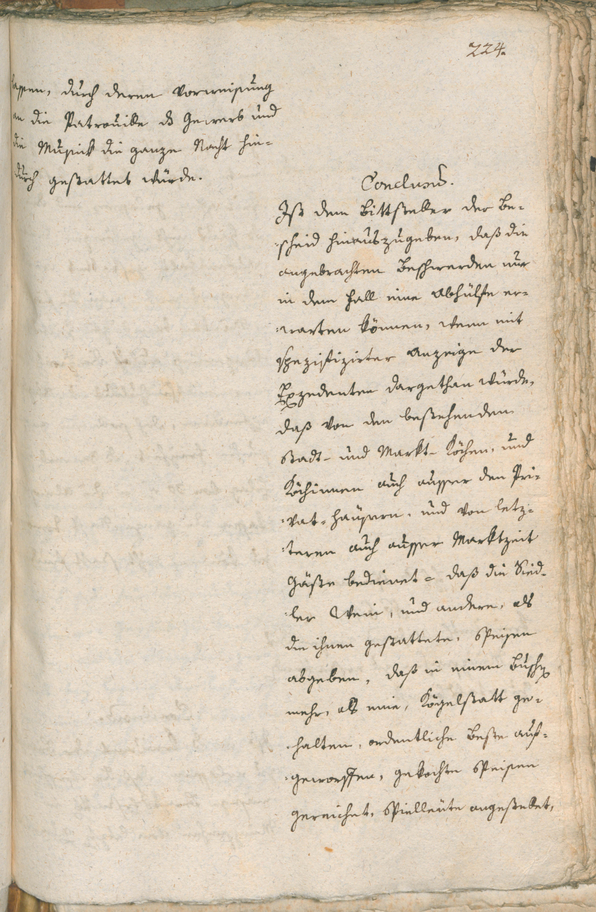 224.
lassen, durch deren Vorweisung
an die Patrouille das Gewerb und
die Musick die ganze Nacht hin-
durch gestattet würde.
Conclusum.
Ist dem Bittsteller der Be-
scheid hinauszugeben, daß die
angebrachten Beschwerden nur
in dem Fall eine Abhülfe er-
warten können, wenn mit
spezifizirter Anzeige der
Exzedenten dargethan würde,
daß von den bestehenden
Stadt- und Markt-Köchen, und
Köchinnen auch ausser den Pri-
vat-Häusern, und von letz-
teren auch ausser Marktzeit
Gäste bedienet – daß die Sied-
ler Wein, und andere, als
die ihnen gestattete, Speisen
abgeben, daß in einem
mehr, als eine, Kögelstatt ge-
halten, ordentliche Beste auf-
geworffen, gekochte Speisen
gereichet, Spielleute angestellet,